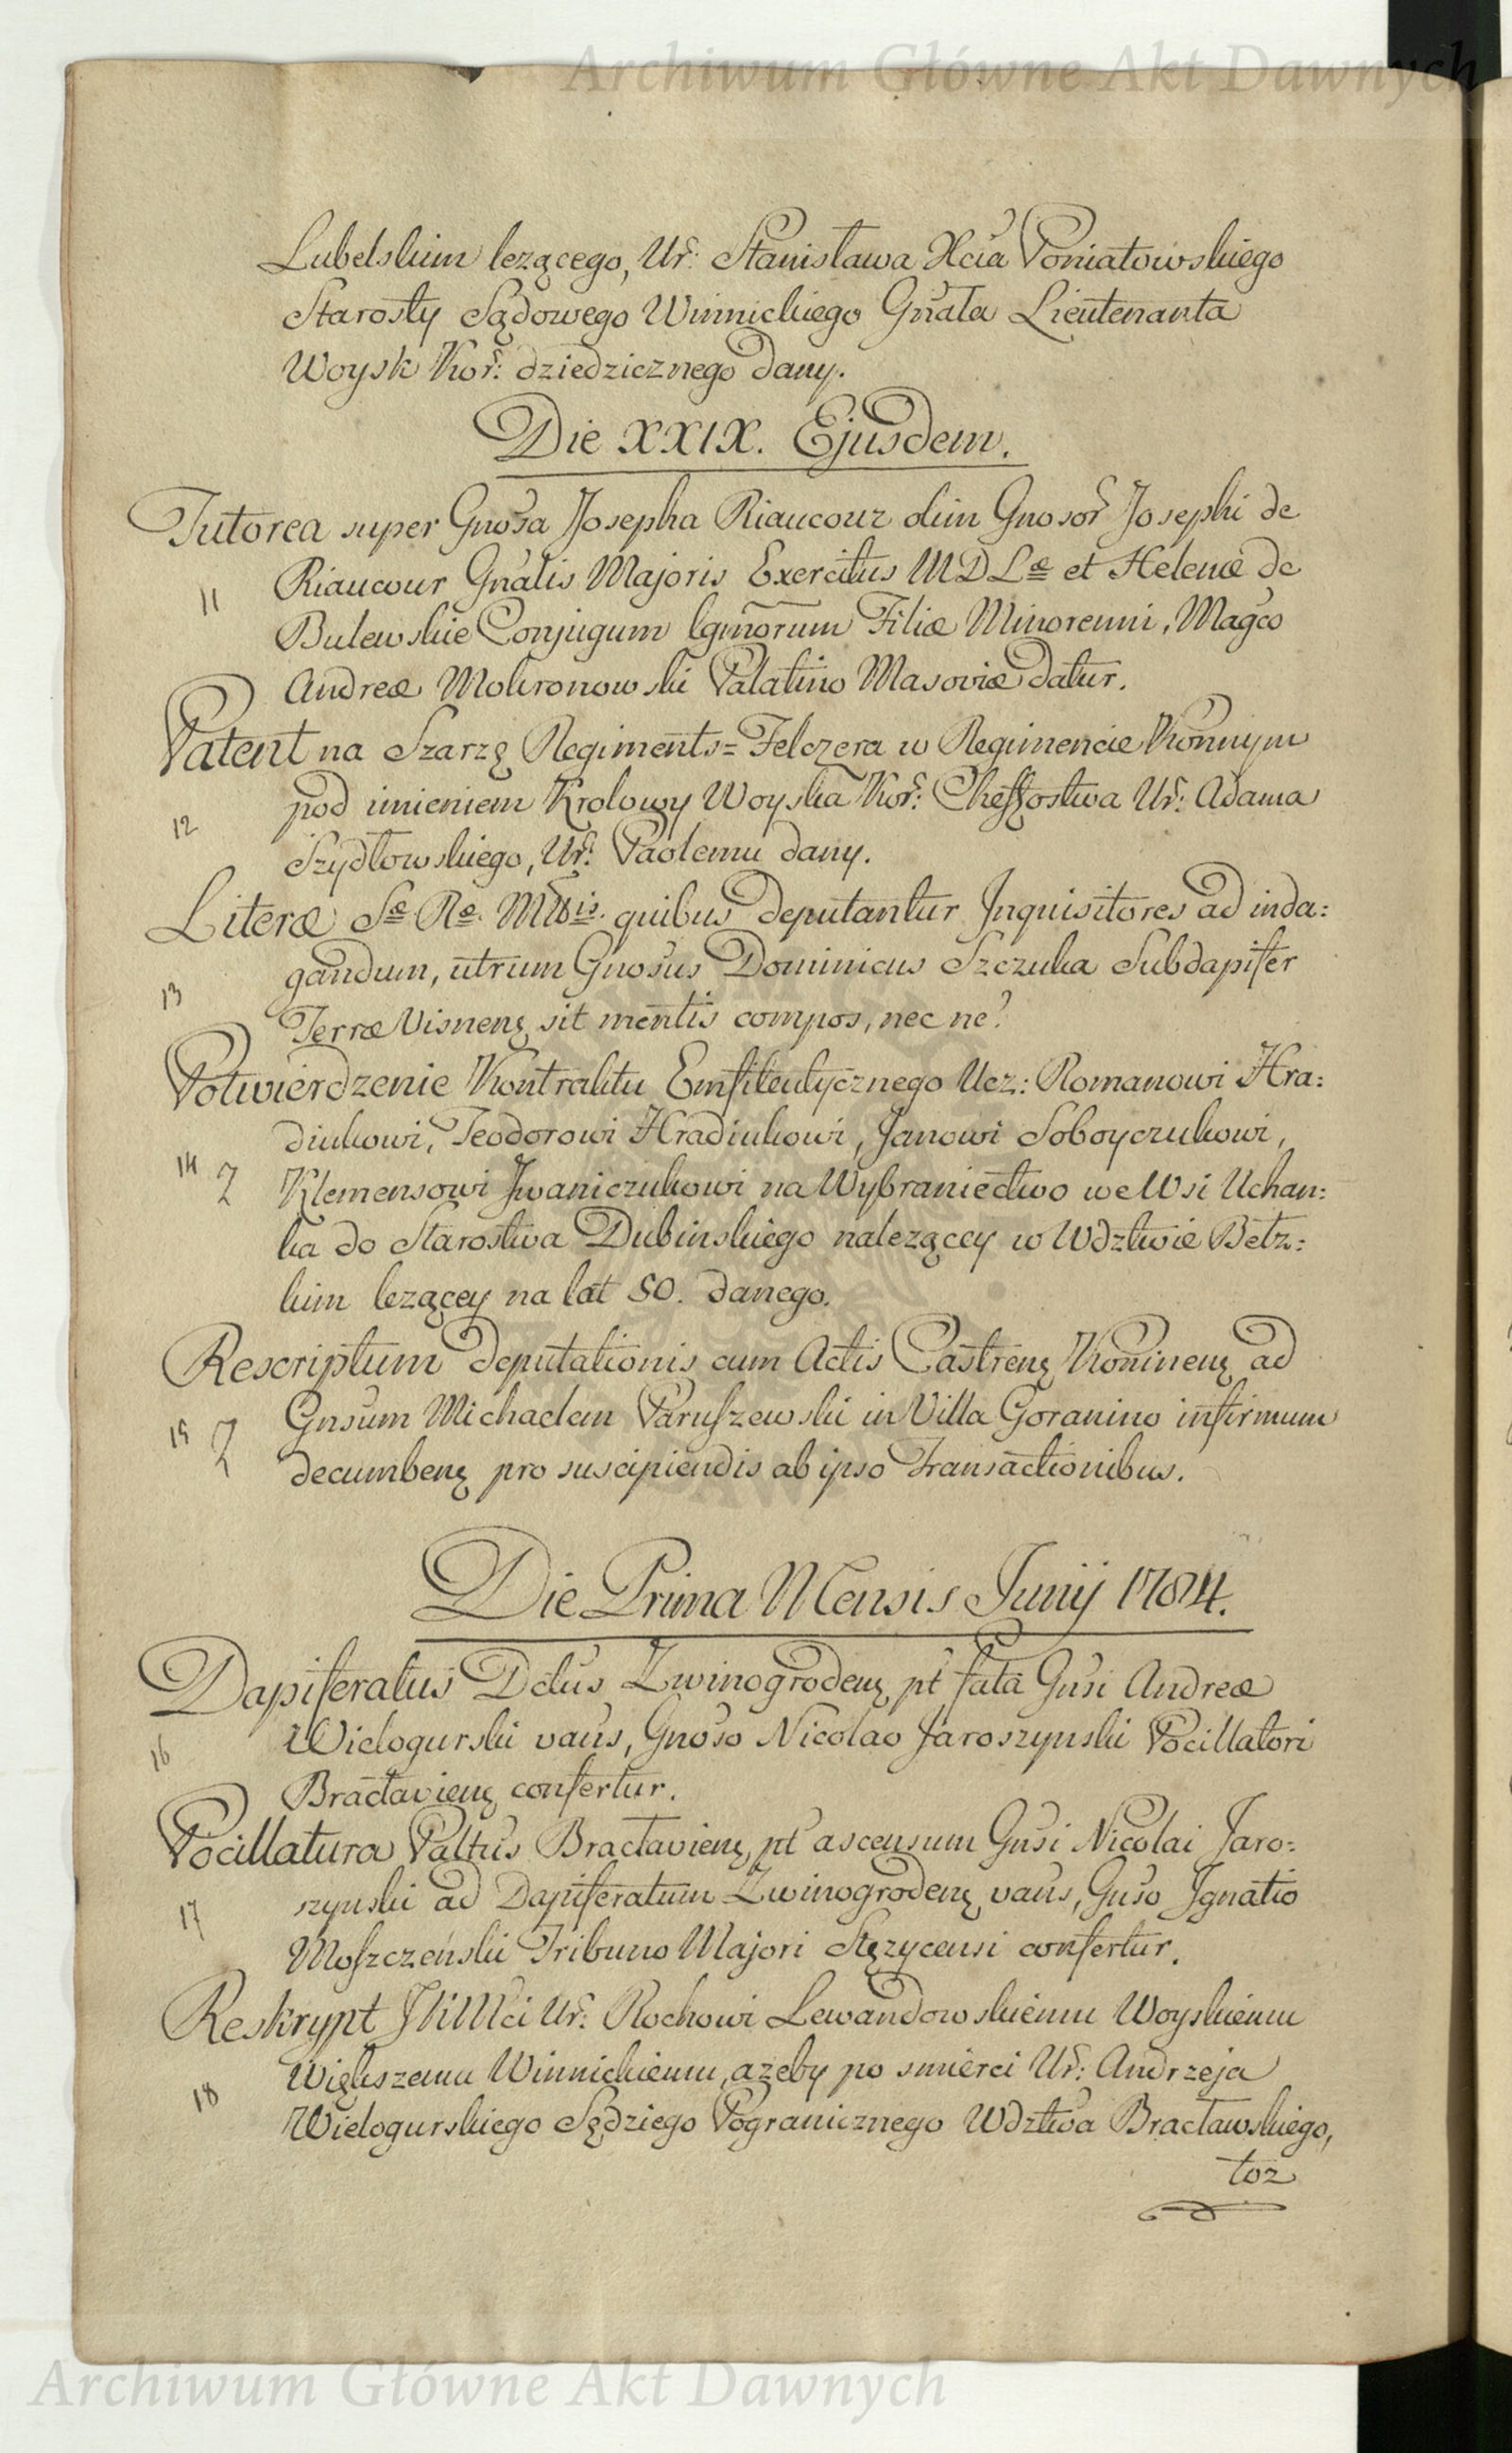 Archiwum Główne Akt Dawnych
Lubelskim lezącego, Ur: Stanisława Xcia Poniatowskiego
Starosty Sądowego Winnickiego Gnała Lieutenanta
Woysk Kor: dziedzicznego dany.
Die XXIX. Ejusdem.
Tutorea super Gnosa Josepha Riaucour olim Gnosor Josephi de
11 Riaucour Gnalis Majoris Exercitus M D Læ et Helenæ de
Bulewskie Conjugum lgmnorum Filiæ Minorenni, Magco
Andreæ Mokronowski Palatino Masoviæ datur.
Patent na Szarzę Regiments= Felczera w Regimencie Konnym
12 pod imieniem Krolowy Woyska Kor: Cheffostwa Ur: Adama
Szydłowskiego, Ur: Paolemu dany.
Literæ Sæ Ræ Mttis. quibus deputantur Inquisitores ad inda:
13 gandum, utrum Gnosus Dominicus Szczuka Subdapifer
Terræ Visnenę sit mentis compos, nec ne?
Potwierdzenie Kontraktu Emfiteutycznego Ucz: Romanowi Hra:
diukowi, Teodorowi Hradiukowi, Janowi Soboyczukowi,
14 Z Klemensowi Iwaniczukowi na Wybraniectwo we Wsi Uchan:
ka do Starostwa Dubinskiego nalezącey w Wdztwie Betz:
kim lezącey na lat 50. danego.
Rescriptum deputationis cum Actis Castrenę Koninenę ad
15 Z Gnsum Michaelem Paruszewski in Villa Goranino infirmum
decumbenę pro suscipiendis ab ipso Transactionibus.
Die Prima Mensis Junij 1784.
Dapiferatus Dctus Zwinogrodenę pt fata Gnsi Andreæ
16 Wielogurski vans, Gnoso Nicolao Jaroszynski Pocillatori
Bractavienę confertur.
Pocillatura Paltus Bractavienę pt ascensum Gnsi Nicolai Jaro:
17 szynski ad Dapiferatum Zwinogrodenę vans, Gnso Ignatio
Moszczeński Tribuno Majori Stęzycensi confertur.
Reskrypt JKMci Ur: Rochowi Lewandowskiemu Woyskiemu
18 Większemu Winnickiemu, azeby po smierci Ur: Andrzeja
Wielogurskiego Sędziego Pogranicznego Wdztwa Bracławskiego,
toz
Archiwum Główne Akt Dawnych